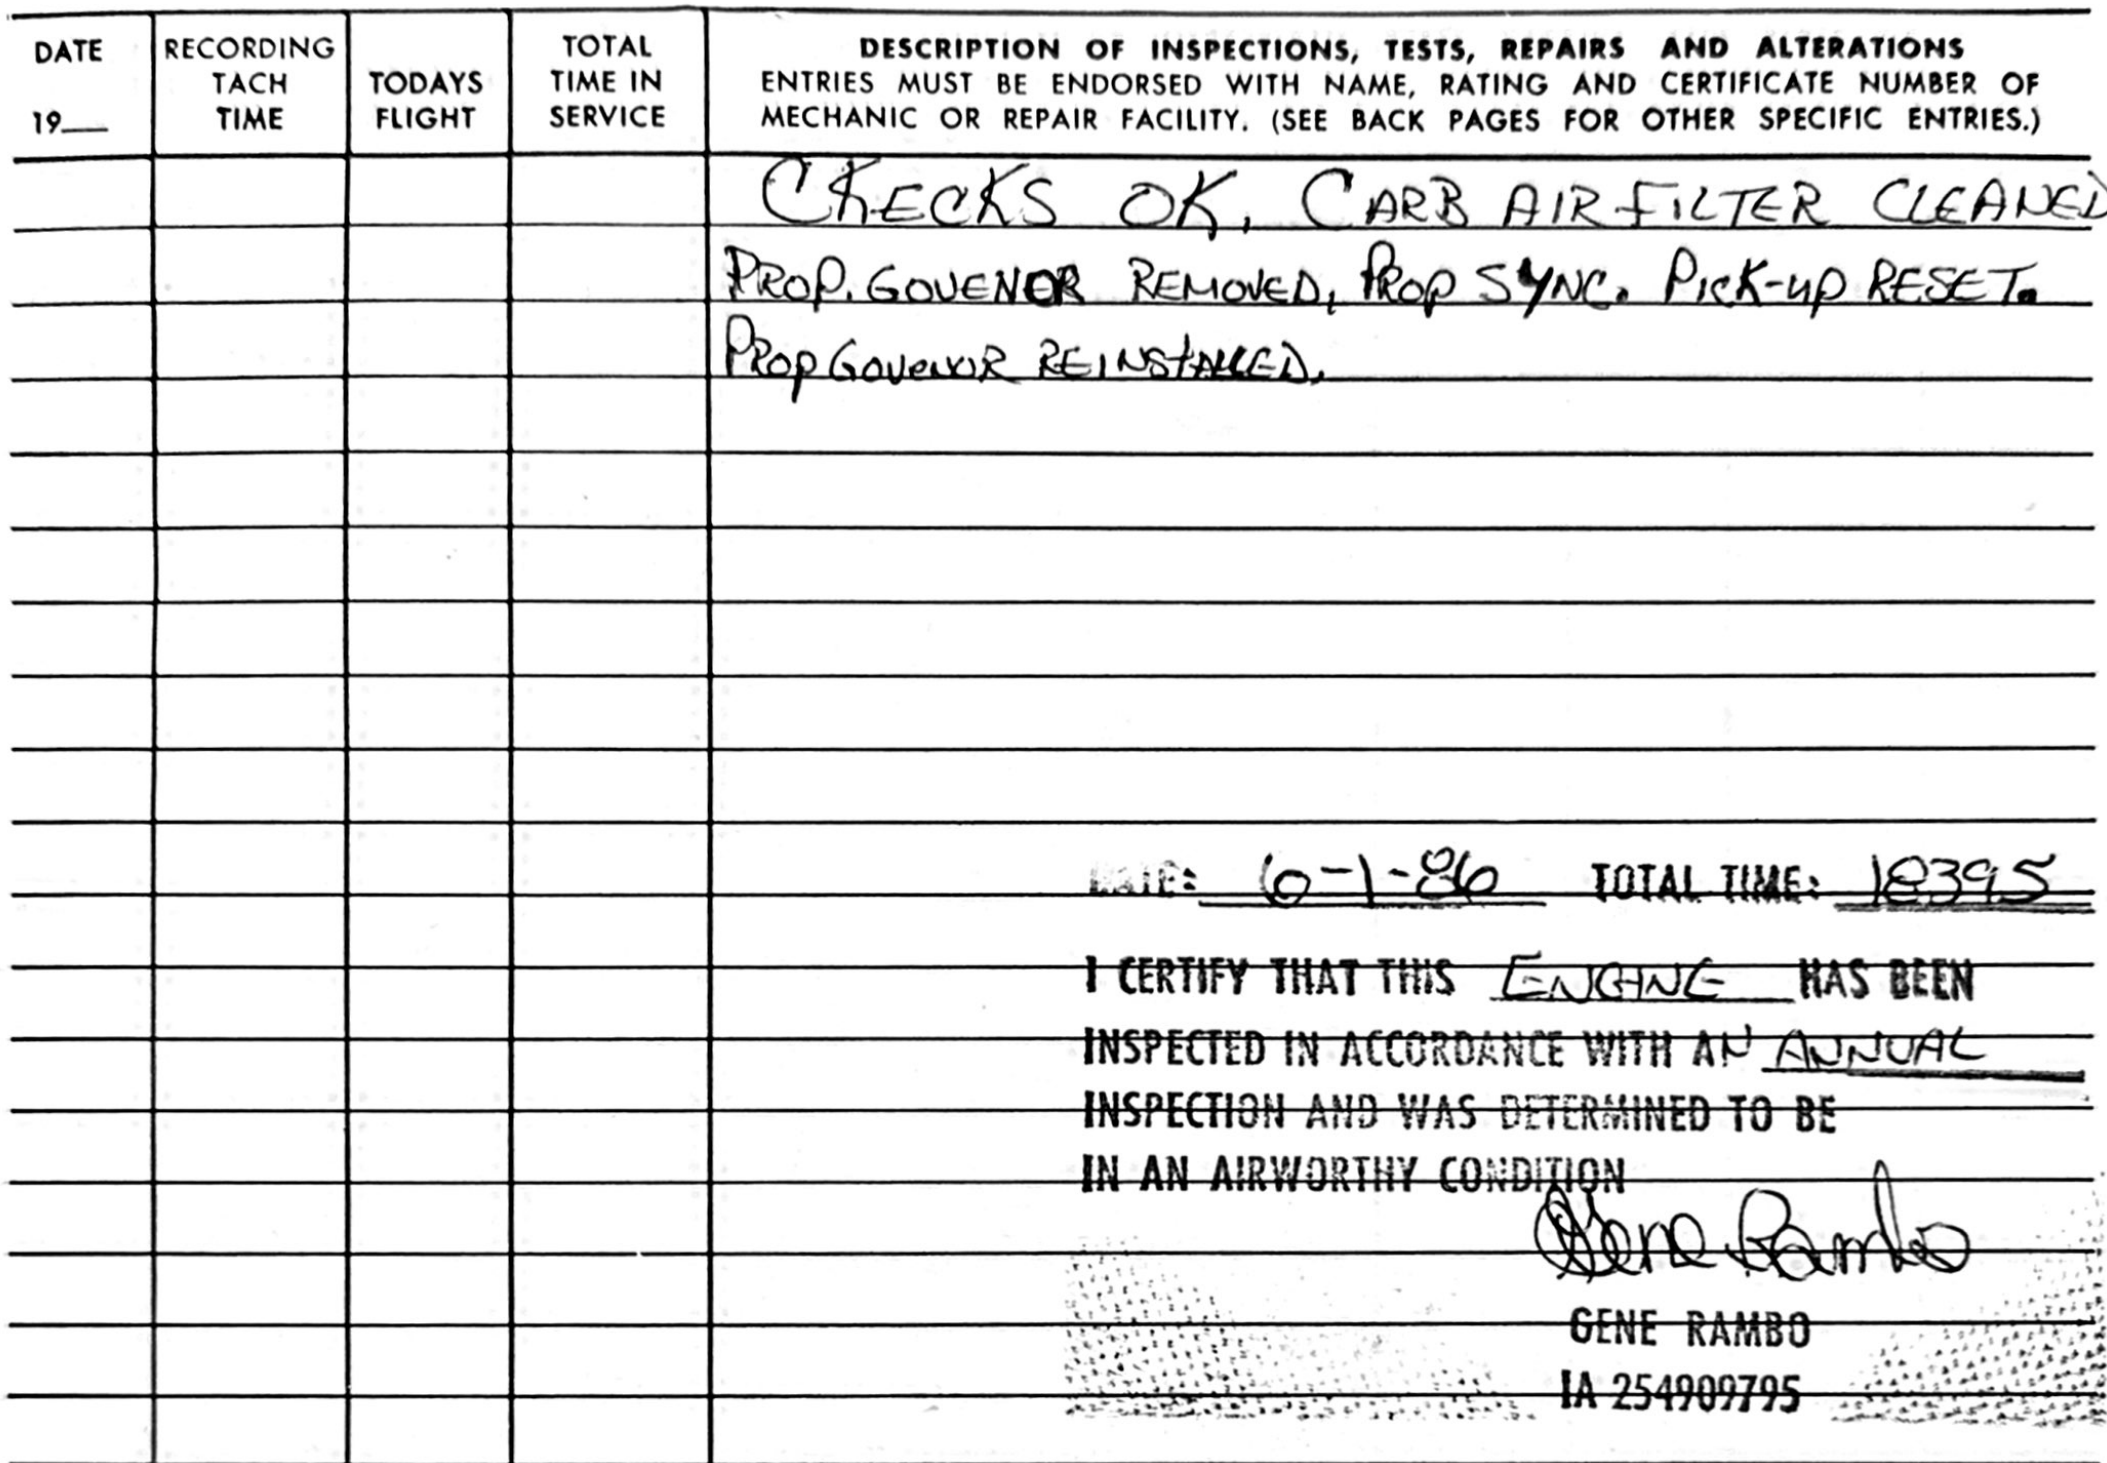 DATE
19__
RECORDING
TACH
TIME
TODAYS
FLIGHT
TOTAL
TIME IN
SERVICE
DESCRIPTION OF INSPECTIONS, TESTS, REPAIRS AND ALTERATIONS
ENTRIES MUST BE ENDORSED WITH NAME, RATING AND CERTIFICATE NUMBER OF
MECHANIC OR REPAIR FACILITY. (SEE BACK PAGES FOR OTHER SPECIFIC ENTRIES.)
CHECKS OK, CARB AIR FILTER CLEANED
PROP. GOVENOR REMOVED, PROP SYNC. PICK-UP RESET.
PROP GOVENOR REINSTALLED.
DATE: 6-1-86 TOTAL TIME: 18395
I CERTIFY THAT THIS ENGINE HAS BEEN
INSPECTED IN ACCORDANCE WITH AN ANNUAL
INSPECTION AND WAS DETERMINED TO BE
IN AN AIRWORTHY CONDITION
Gene Rambo
GENE RAMBO
IA 254909795